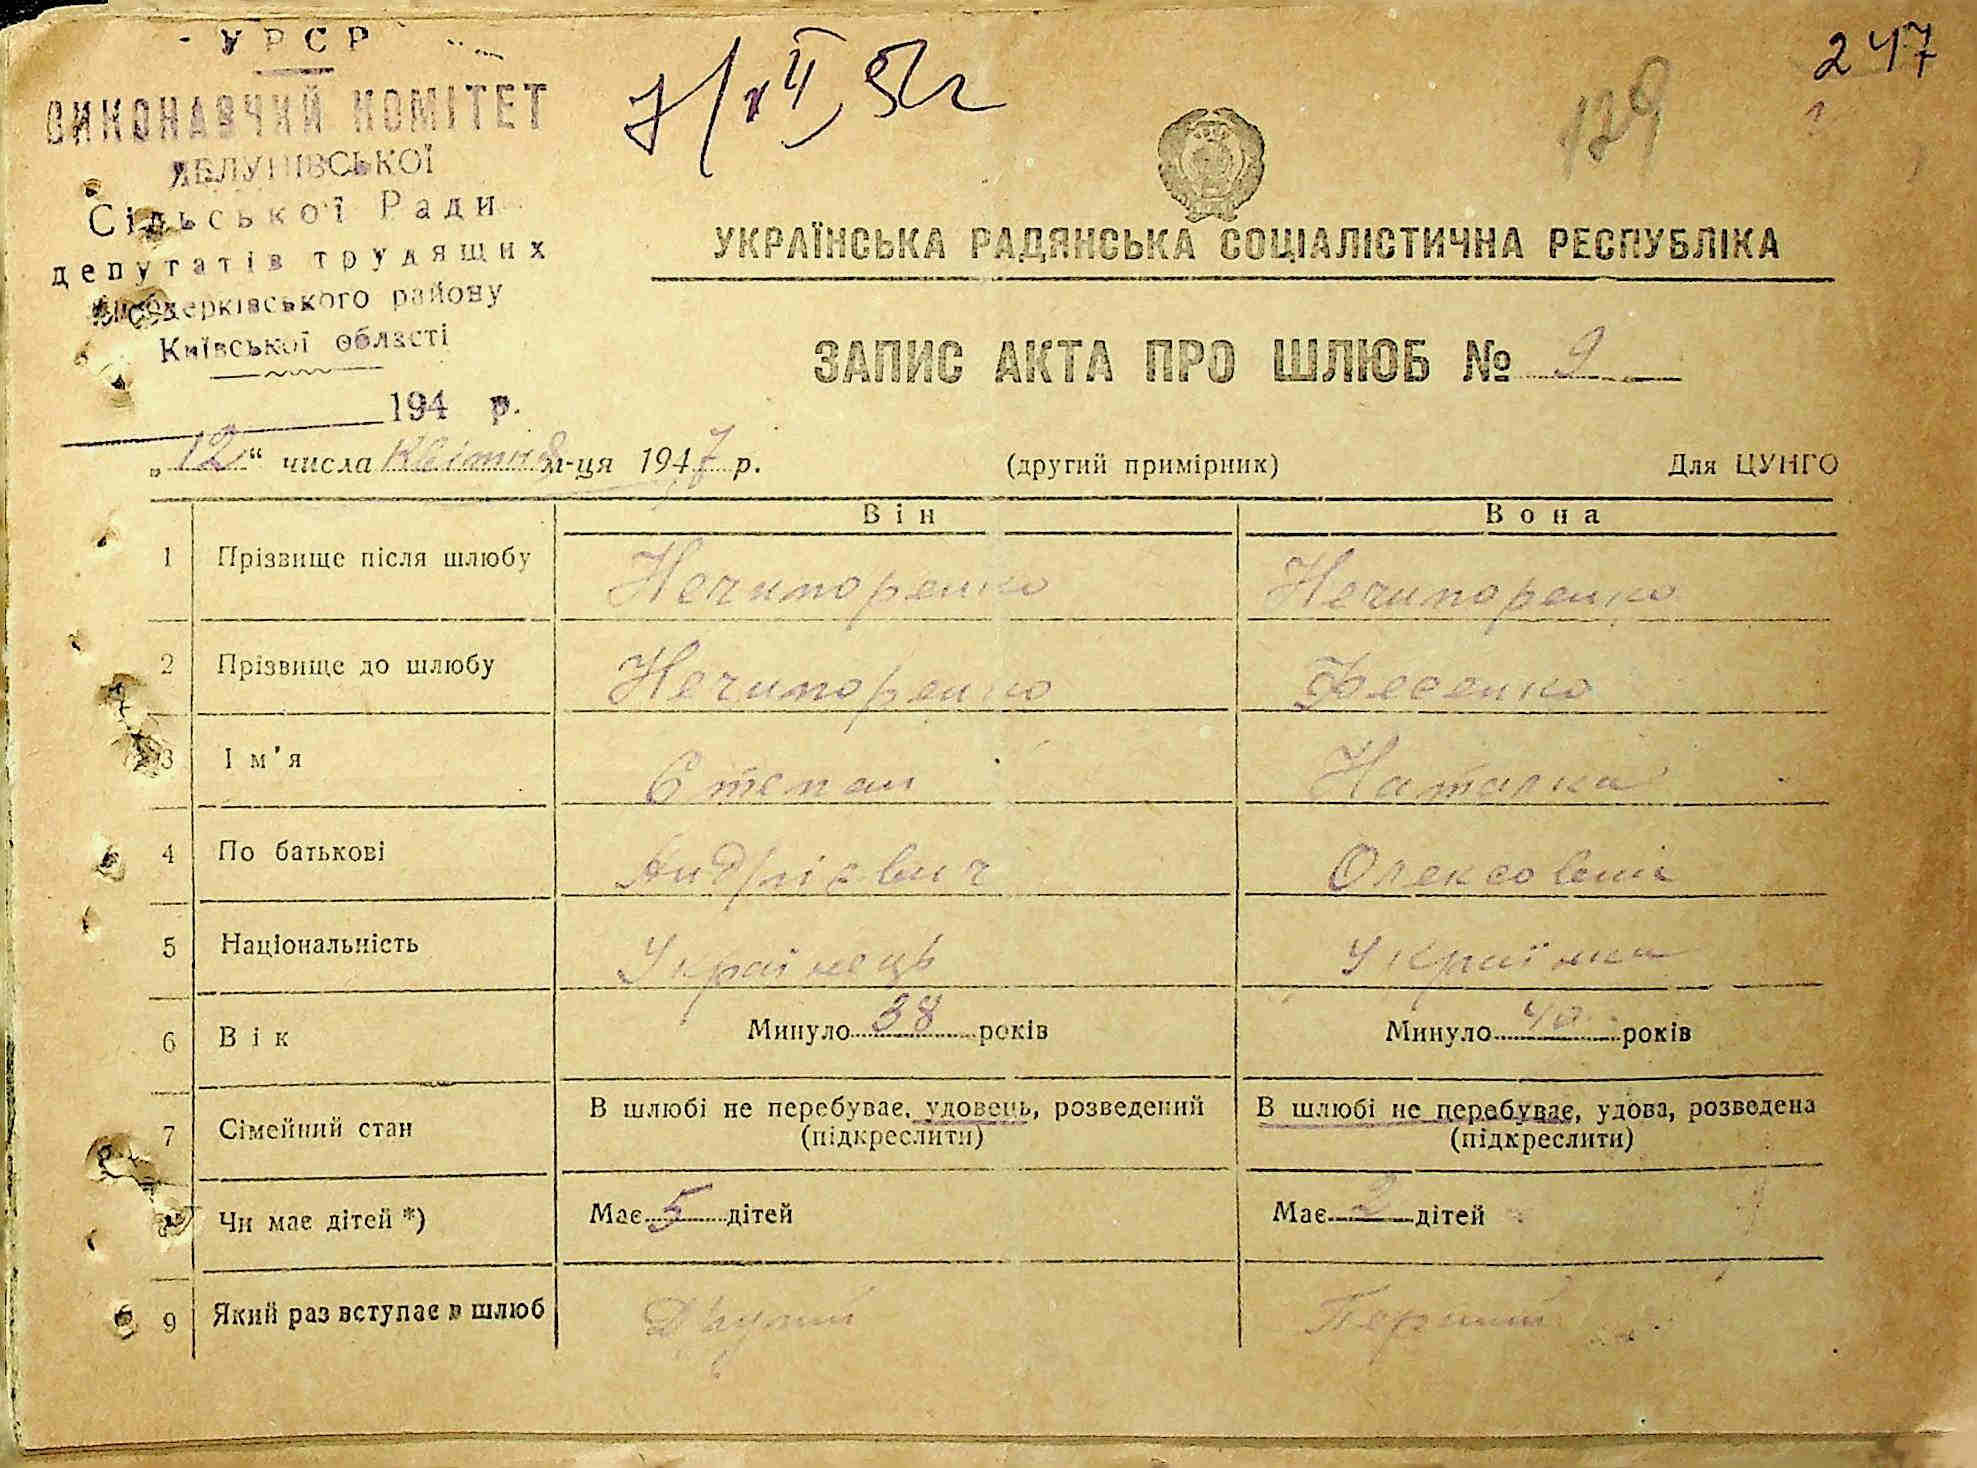 УРСР
ВИКОНАВЧИЙ КОМІТЕТ
ЯБЛУНІВСЬКОЇ
Сільської Ради
депутатів трудящих
Київської області
194 р.
247
129
УКРАЇНСЬКА РАДЯНСЬКА СОЦІАЛІСТИЧНА РЕСПУБЛІКА
ЗАПИС АКТА ПРО ШЛЮБ № 9
„12“ числа Квітня м-ця 1947 р. (другий примірник) Для ЦУНГО
Він Вона
1 Прізвище після шлюбу Нечипоренко Нечипоренко
2 Прізвище до шлюбу Нечипоренко Фесенко
3 Ім'я Степан Наталка
4 По батькові Андрієвич Олексовна
5 Національність Українець Українка
6 Вік Минуло 38 років Минуло 40 років
7 Сімейний стан В шлюбі не перебуває, удовець, розведений В шлюбі не перебуває, удова, розведена
(підкреслити) (підкреслити)
Чи має дітей *) Має 5 дітей Має 2 дітей
9 Який раз вступає в шлюб Другий Перший